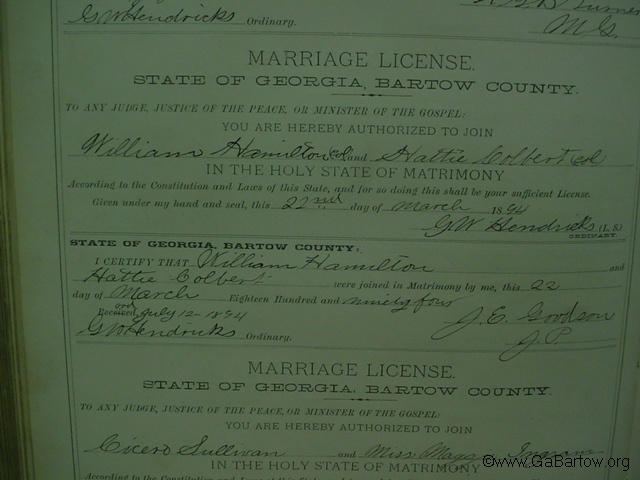 G W Hendricks Ordinary. M. G.
MARRIAGE LICENSE.
STATE OF GEORGIA, BARTOW COUNTY.
TO ANY JUDGE, JUSTICE OF THE PEACE, OR MINISTER OF THE GOSPEL:
YOU ARE HEREBY AUTHORIZED TO JOIN
William Hamilton col and Hattie Colbert col
IN THE HOLY STATE OF MATRIMONY
According to the Constitution and Laws of this State, and for so doing this shall be your sufficient License.
Given under my hand and seal, this 22nd day of March 1894
G.W. Hendricks (L. S.)
ORDINARY.
STATE OF GEORGIA, BARTOW COUNTY:
I CERTIFY THAT William Hamilton and
Hattie Colbert were joined in Matrimony by me, this 22
day of March Eighteen Hundred and ninety four
July 12 - 1894 J. E. Goodson
G W Hendricks Ordinary. J. P.
MARRIAGE LICENSE.
STATE OF GEORGIA, BARTOW COUNTY.
TO ANY JUDGE, JUSTICE OF THE PEACE, OR MINISTER OF THE GOSPEL:
YOU ARE HEREBY AUTHORIZED TO JOIN
Cicero Sullivan and Miss Ingram
IN THE HOLY STATE OF MATRIMONY
©www.GaBartow.org